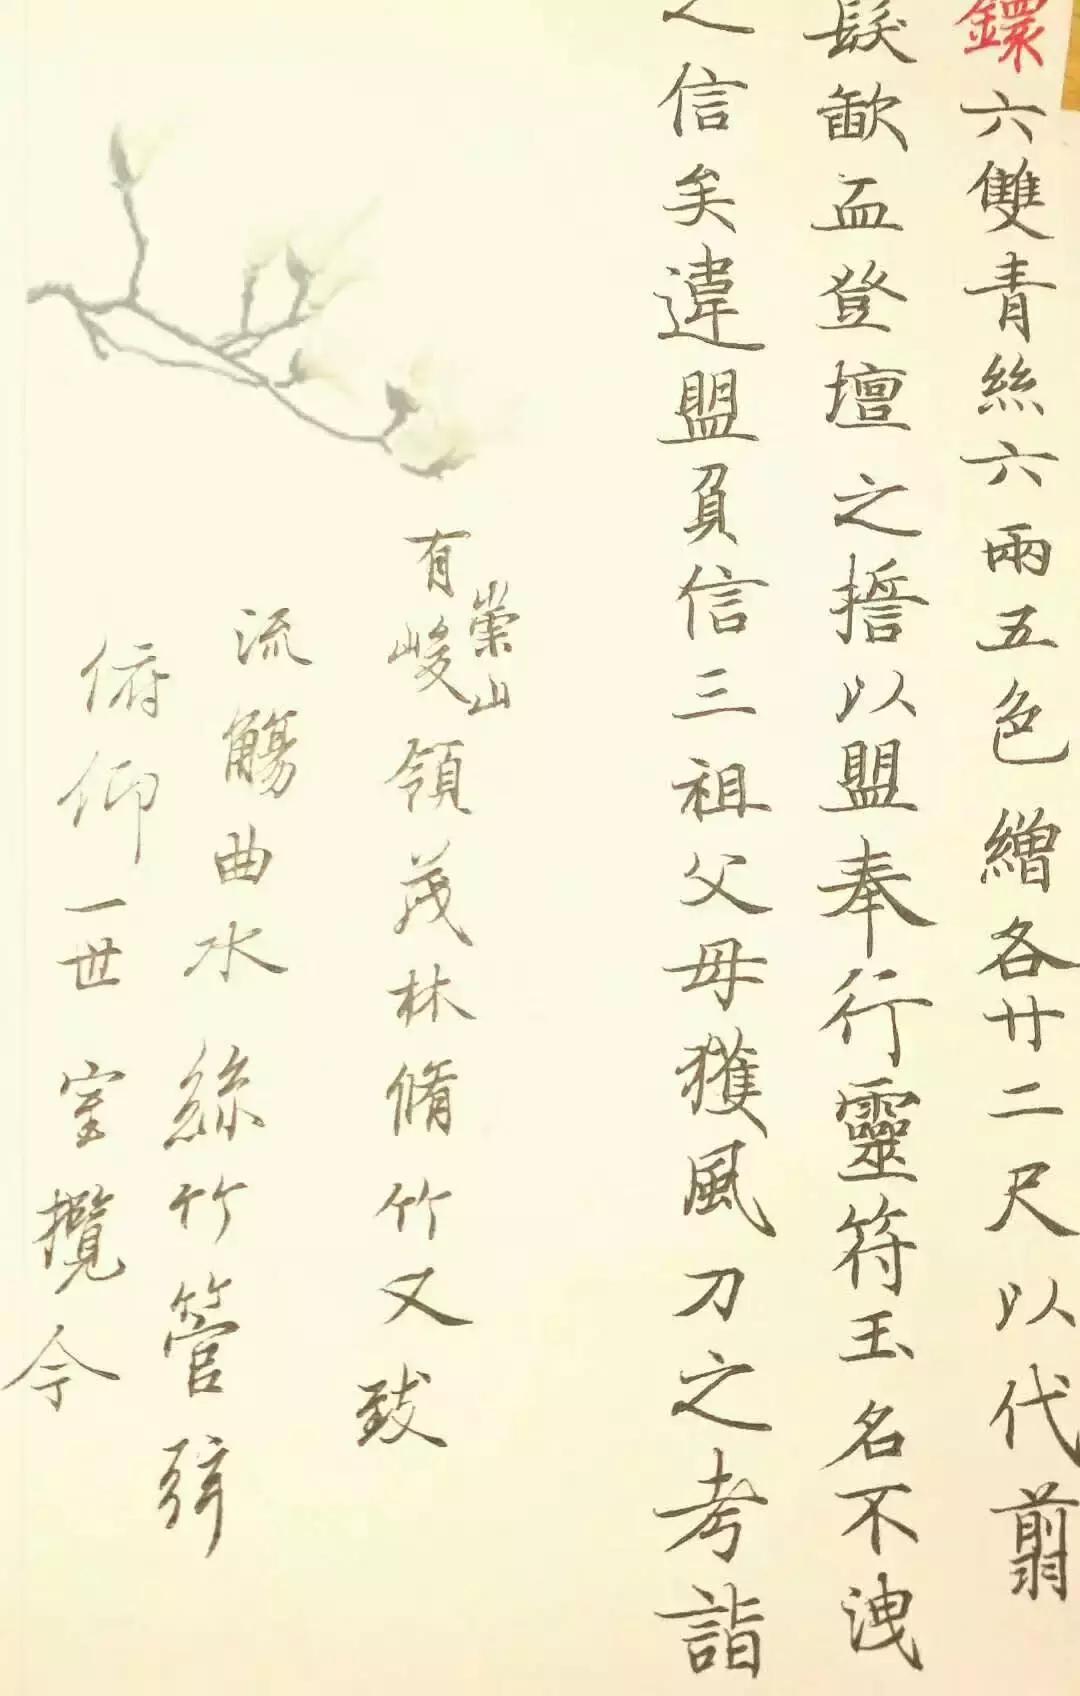 鐶六雙青絲六兩五色繒各廿二尺以代翦
髮歃血登壇之誓以盟奉行靈符玉名不洩
之信矣違盟負信三祖父母獲風刀之考詣
有崇山峻領茂林脩竹又致
流觴曲水絲竹管弦
俯仰一世室攬今